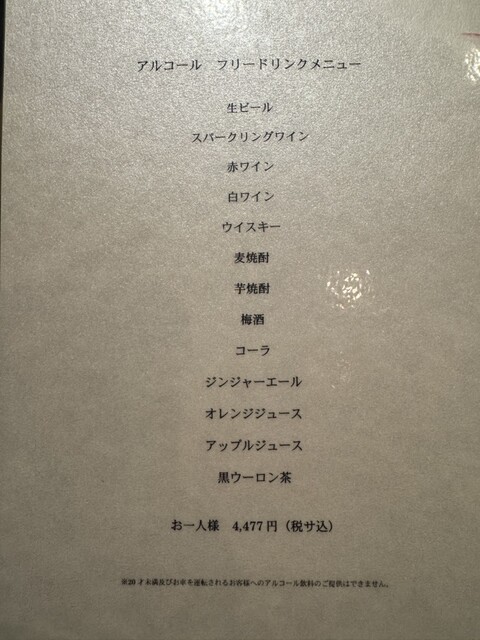 アルコール　フリードリンクメニュー
生ビール
スパークリングワイン
赤ワイン
白ワイン
ウイスキー
麦焼酎
芋焼酎
梅酒
コーラ
ジンジャーエール
オレンジジュース
アップルジュース
黒ウーロン茶
お一人様　4,477円（税サ込）
※20才未満及びお車を運転されるお客様へのアルコール飲料のご提供はできません。